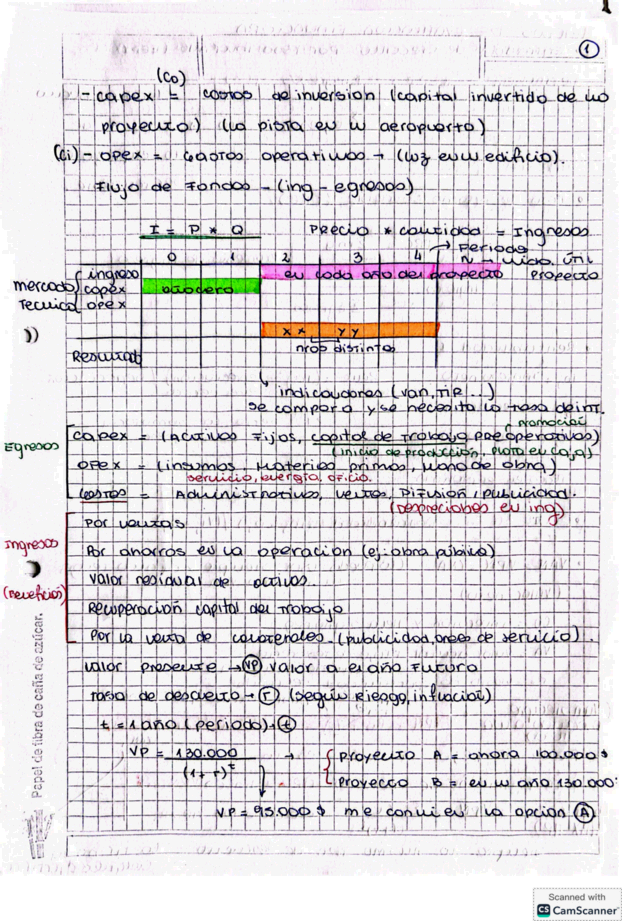 1
(Co)
- capex = costos de inversion (capital invertido de un
proyecto) (la pista en un aeropuerto)
(Ci) - opex = gastos operativos → (luz en un edificio).
Flujo de Fondos - (ing - egresos)
I = P * Q Precio * cantidad = Ingresos
0 1 2 3 4 → Periodo
N → vida útil
proyecto
ingreso en cada año del proyecto
mercado capex año cero
Tecnico opex
xx yy
nros distintos
Resultad
indicadores (van, TIR...)
se compara y se necesita la tasa de int.
promocial
Egresos capex = (Activos Fijos, capital de trabajo pre operativos)
(inicio de producción, plata en caja)
opex = (insumos, Materias primas, Mano de obra)
servicio, energia, oficio.
costos = Administrativos, ventas, Difusion, publicidad.
(Despreciables en ing)
Ingresos
(beneficios)
Por ventas
Por ahorros en la operacion (ej: obra pública)
Valor residual de activos.
Recuperación capital del Trabajo
Por la venta de colaterales. (publicidad, areas de servicio).
valor presente → VP valor a el año Futuro
tasa de descuento → r (según Riesgo, inflación)
t = 1 año (periodo) → t
VP = 130.000 → Proyecto A = ahora 100.000 $
(1 + r)^t Proyecto B = en un año 130.000
VP = 95.000 $ me convien la opcion A
Papel de fibra de caña de azúcar.
Scanned with
CS CamScanner